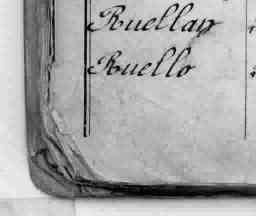 Ruellan
Ruello